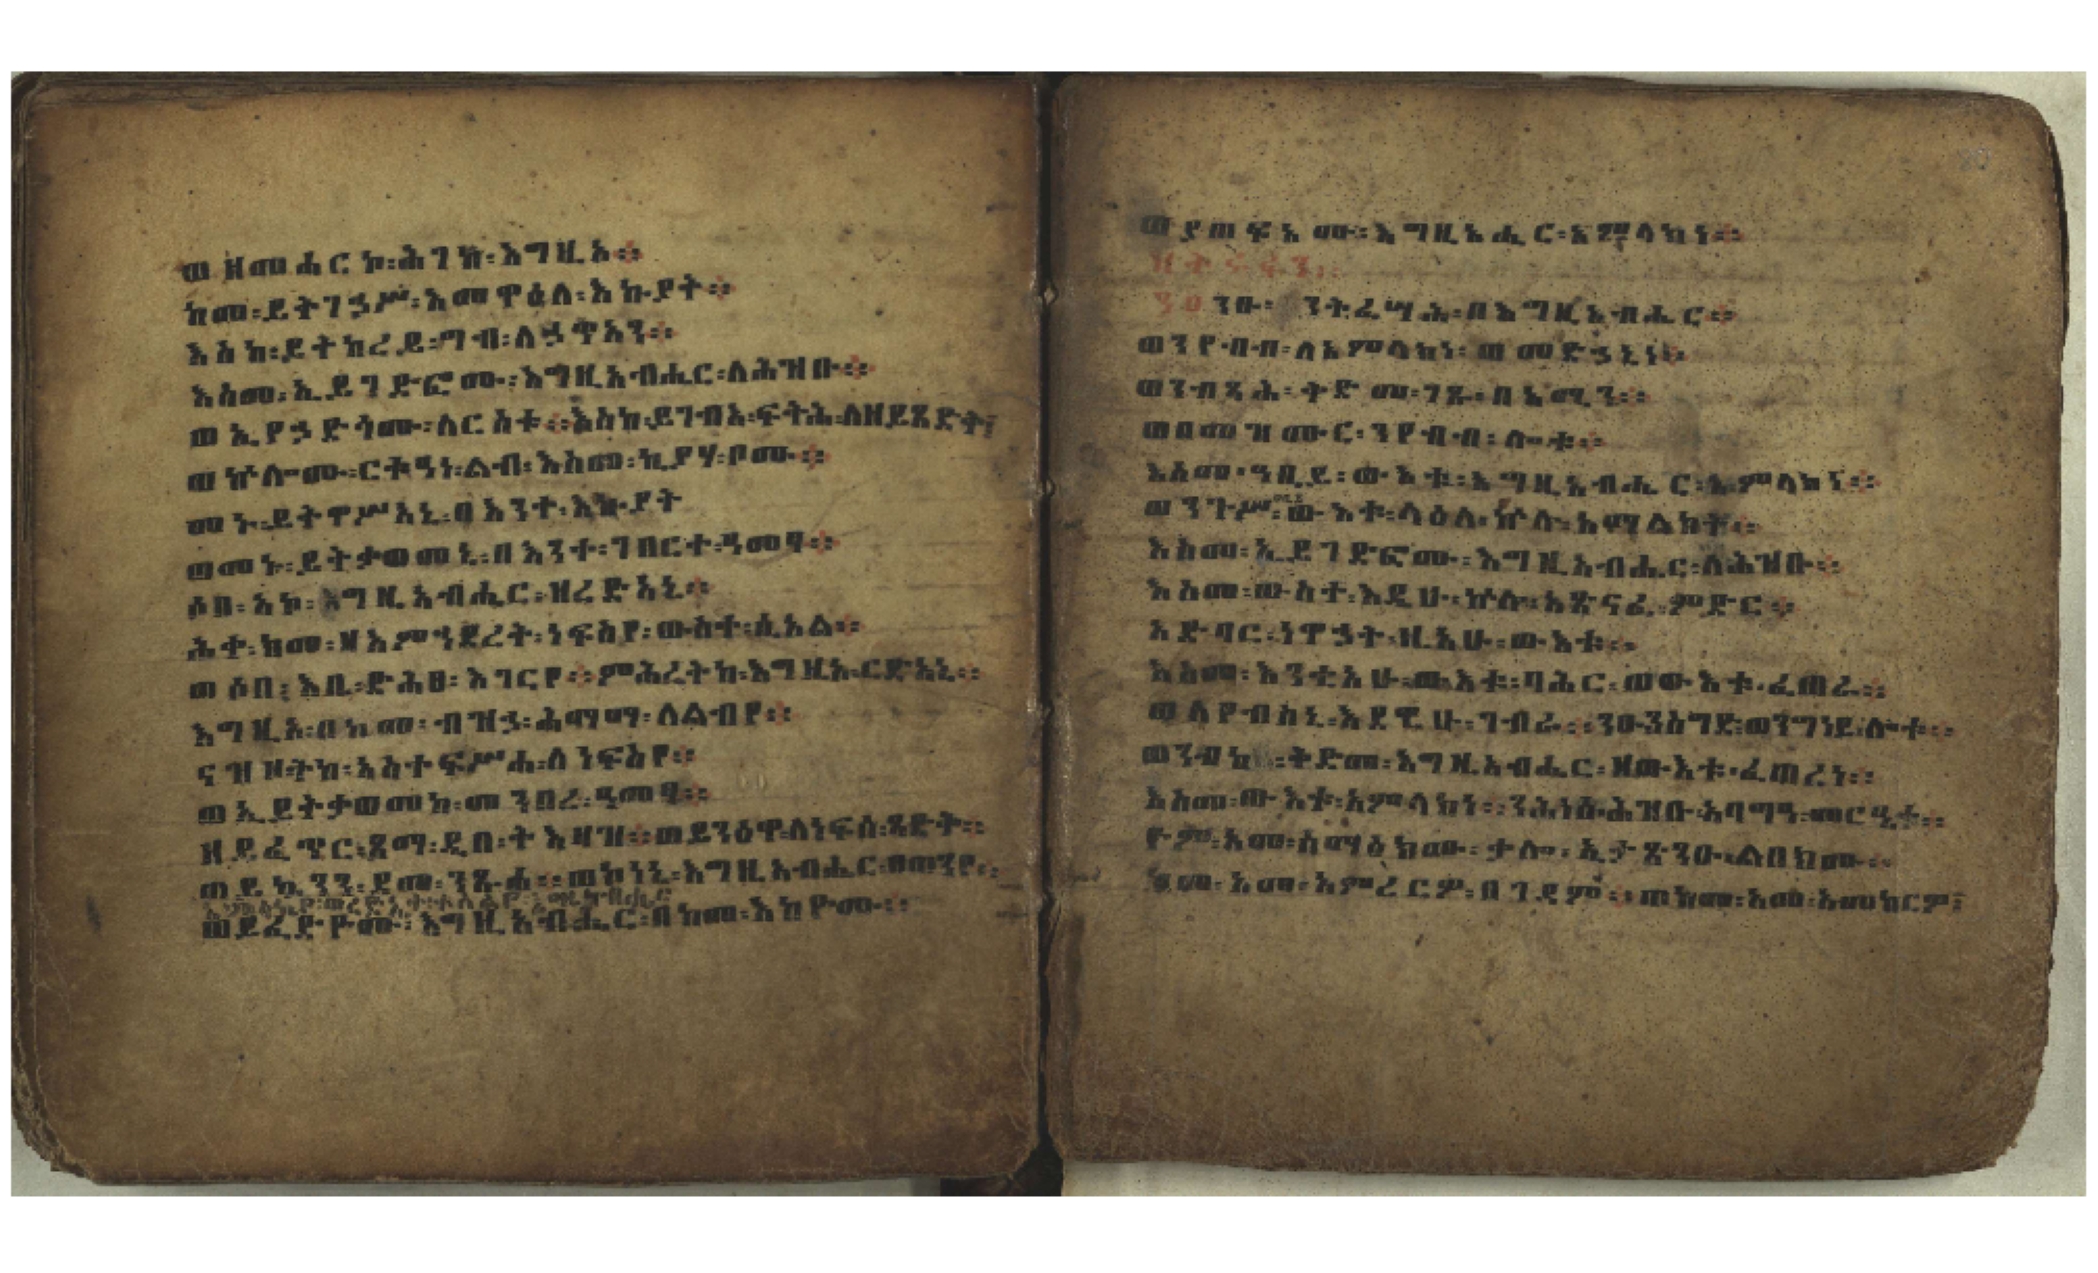 ወዘመሐርኮ፡ሕገከ፡እግዚአ።
ከመ፡ይትገኃሥ፡እመዋዕለ፡እኩያት።
እስከ፡ይትከረይ፡ግብ፡ለኃጥአን።
እስመ፡ኢይገድፎሙ፡እግዚአብሔር፡ለሕዝቡ።
ወኢየኃድጎሙ፡ለርስቱ።እስከ፡ይገብእ፡ፍትሕ፡ለዘይጸድት፤
ወኵሎሙ፡ርቱዓነ፡ልብ፡እስመ፡ኪያሃ፡ቦሙ።
መኑ፡ይትዋሥአኒ፡በእንተ፡እኩያት
ወመኑ፡ይትቃወመኒ፡በእንተ፡ገበርተ፡ዓመፃ።
ሶበ፡አኮ፡እግዚአብሔር፡ዝረድአኒ።
ሕቀ፡ከመ፡ዘእምኀደረት፡ነፍስየ፡ውስተ፡ሲኦል።
ወሶበ፡እቤ፡ድሕፀ፡እገርየ።ምሕረትከ፡እግዚኦ፡ርድአኒ።
እግዚኦ፡በከመ፡ብዝኃ፡ሕማማ፡ለልብየ።
ናዝዞትከ፡አስተፍሥሐ፡ለነፍስየ።
ወኢይትቃወመከ፡መንበረ፡ዓመፃ።
ዘይፈጥር፡ጻማ፡ዲበ፡ትእዛዝ።ወይንዕዋ፡ለነፍሰ፡ጻድት።
ወይኴንን፡ደመ፡ንጹሐ።ወኮነኒ፡እግዚአብሔር፡ፀወንየ።
ወይፈድዮሙ፡እግዚአብሔር፡በከመ፡እከዮሙ።
ወያጠፍአሙ፡እግዚአብሔር፡አምላክነ።
ንዑ፡ ንትፌሣሕ፡በእግዚአብሔር።
ወንየብብ፡ለአምላክነ፡ወመድኃኒነ።
ወንብጻሕ፡ቅድመ፡ገጹ፡በአሚን።
ወበመዝሙር፡ንየብብ፡ሎቱ።
እስመ፡ዓቢይ፡ውእቱ፡እግዚአብሔር፡አምላክነ።
ወንጉሥ፡ውእቱ፡ላዕለ፡ኵሉ፡አማልክት።
እስመ፡ኢይገድፎሙ፡እግዚአብሔር፡ለሕዝቡ።
እስመ፡ውስተ፡እዴሁ፡ኵሉ፡አጽናፈ፡ምድር።
አድባር፡ነዋኃት፡ዚአሁ፡ውእቱ።
እስመ፡እንቲአሁ፡ውእቱ፡ባሕር፡ወውእቱ፡ፈጠራ።
ወለየብስኒ፡እደዊሁ፡ገብራ።ንዑ፡ንስግድ፡ወንግነይ፡ሎቱ።
ወንብኪ፡ቅድመ፡እግዚአብሔር፡ዘውእቱ፡ፈጠረነ።
እስመ፡ውእቱ፡አምላክነ።ንሕነሰ፡ሕዝቡ፡አባግዓ፡መርዔቱ።
ዮም፡እመ፡ሰማዕክሙ፡ቃሎ፡ኢታጽንዑ፡ልበክሙ።
ከመ፡አመ፡አምረርዎ፡በገዳም።ወከመ፡አመ፡አመከርዎ፤